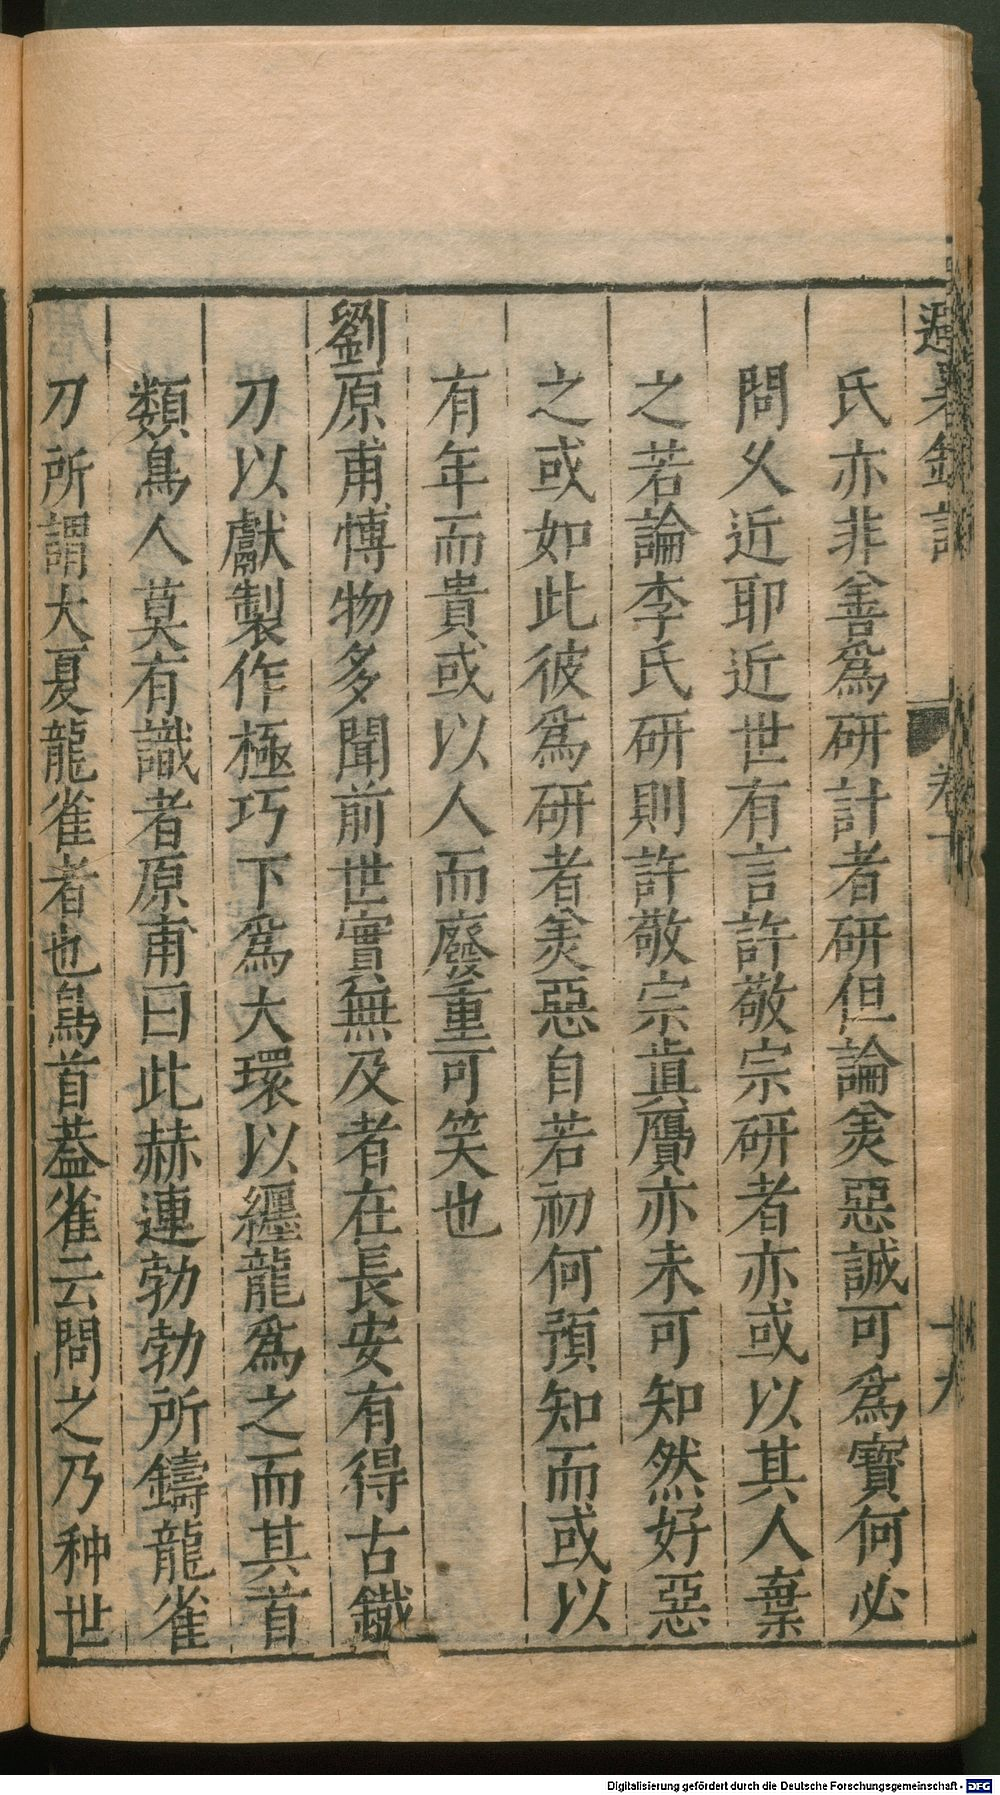 避暑錄話
卷下
氏亦非善爲研計者研但論羙惡誠可爲寶何必
問乆近耶近世有言許敬宗研者亦或以其人棄
之若論李氏研則許敬宗眞贋亦未可知然好惡
之或如此彼爲研者羙惡自若初何預知而或以
有年而貴或以人而廢重可笑也
劉原甫博物多聞前世實無及者在長安有得古鐵
刀以獻製作極巧下爲大環以纏龍爲之而其首
類鳥人莫有識者原甫曰此赫連勃勃所鑄龍雀
刀所謂大夏龍雀者也鳥首蓋雀云問之乃种世
Digitalisierung gefördert durch die Deutsche Forschungsgemeinschaft - DFG